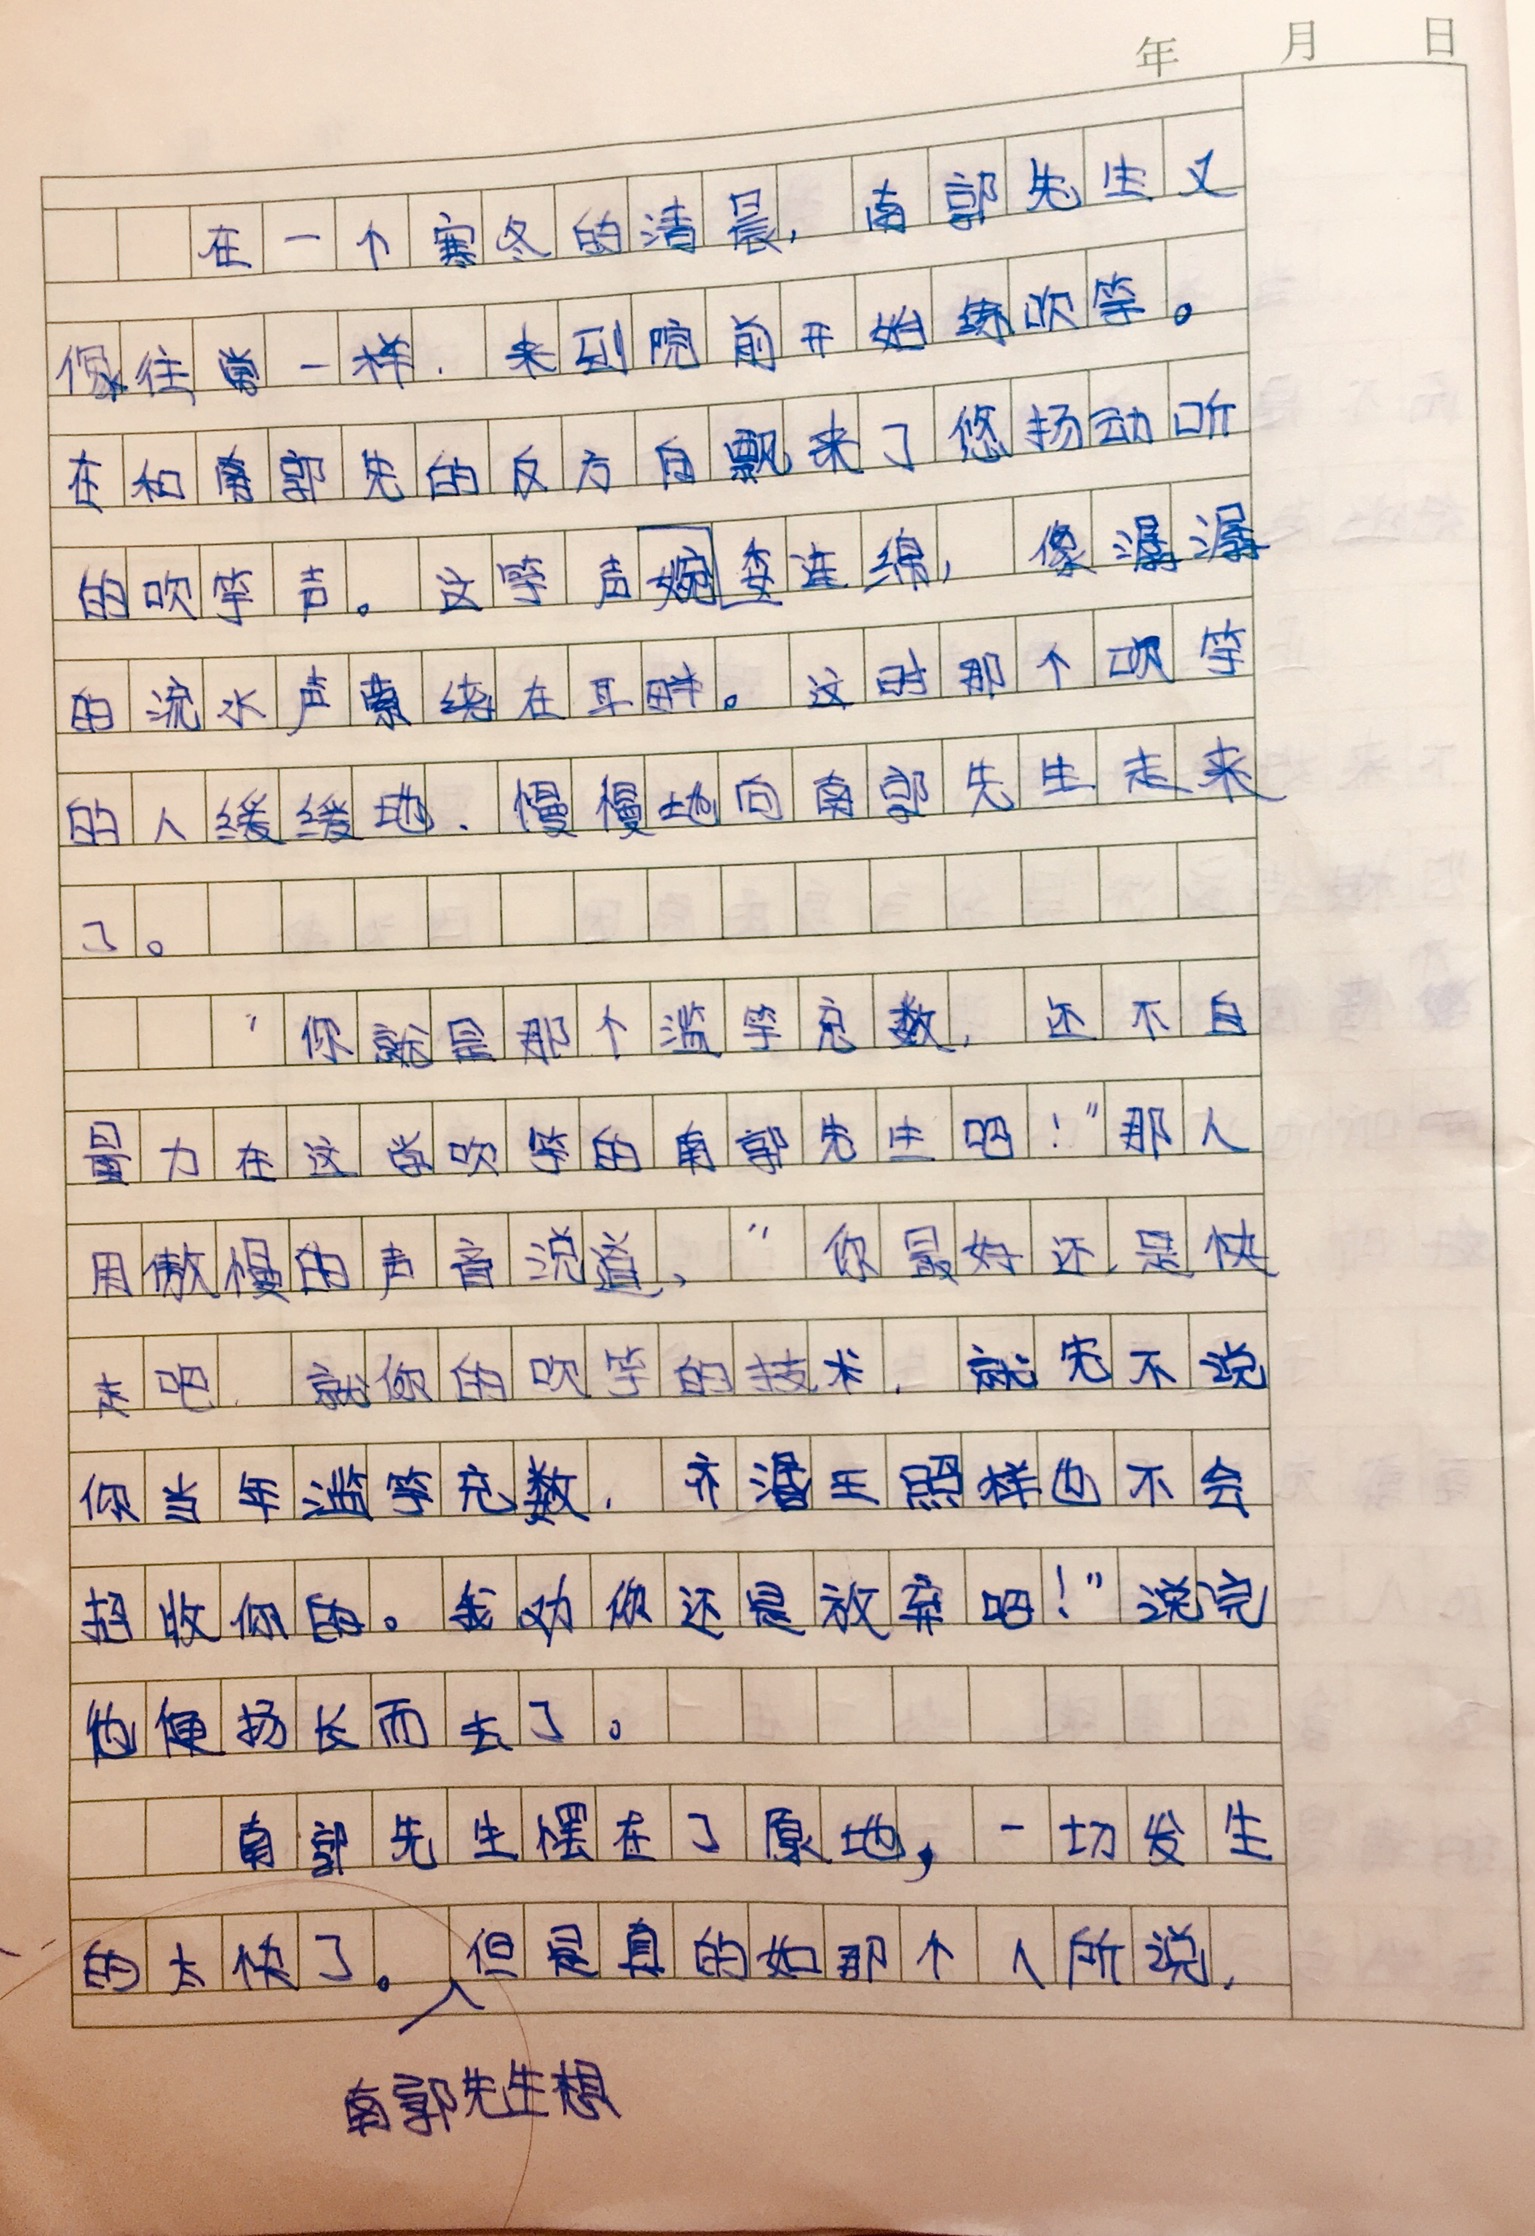 年 月 日
在一个寒冬的清晨，南郭先生又
像往常一样，来到院前开始练吹竽。
在和南郭先的反方向飘来了悠扬动听
的吹竽声。这竽声婉委连绵，像潺潺
的流水声萦绕在耳畔。这时那个吹竽
的人缓缓地、慢慢地向南郭先生走来
了。
“你就是那个滥竽充数，还不自
量力在这学吹竽的南郭先生吧！”那人
用傲慢的声音说道、“你最好还是快
走吧，就你的吹竽的技术，就先不说
你当年滥竽充数，齐湣王照样也不会
招收你的。我劝你还是放弃吧！”说完
他便扬长而去了。
南郭先生愣在了原地，一切发生
的太快了。但是真的如那个人所说，
南郭先生想